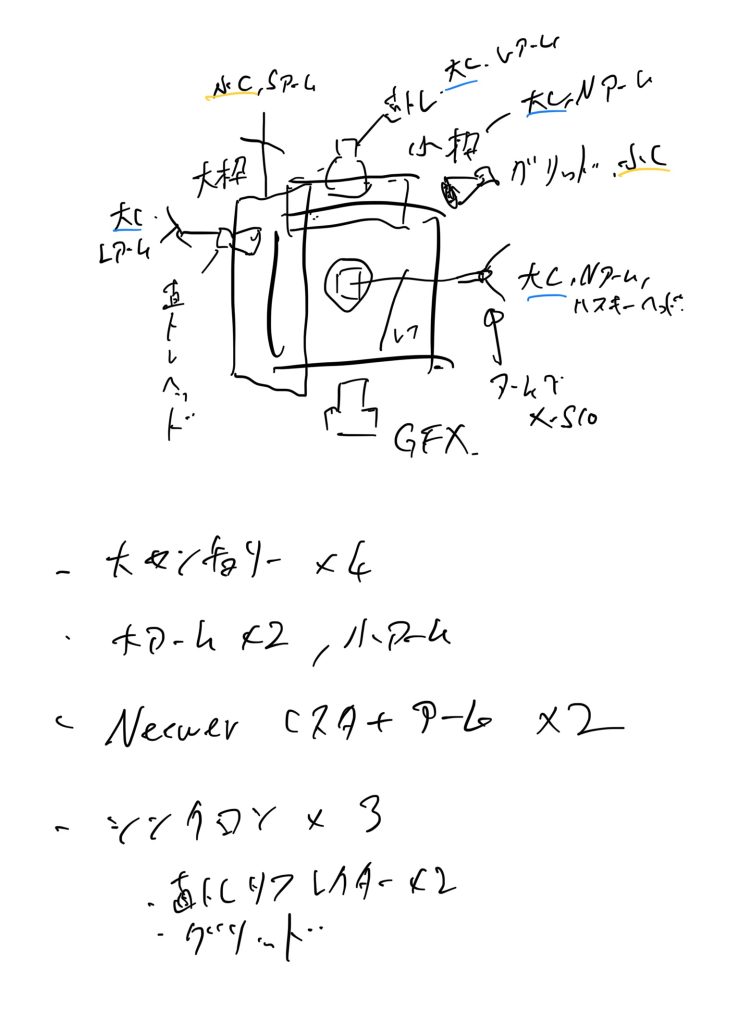 大C.Lアーム
N.C,Sアーム
直トレ
大C,Nアーム
小枠
グリッド.小C
大枠
大C.
Lアーム
直トレヘッド
大C,Nアーム,
ハスキーヘッド
レフ
アームで
GFX.
- 大センチュリー ×4
・ 大アーム ×2 , 小アーム
Neewer Cスタ+アーム ×2
- シンクロン × 3
・直トレリフレクター ×2
・グリッド